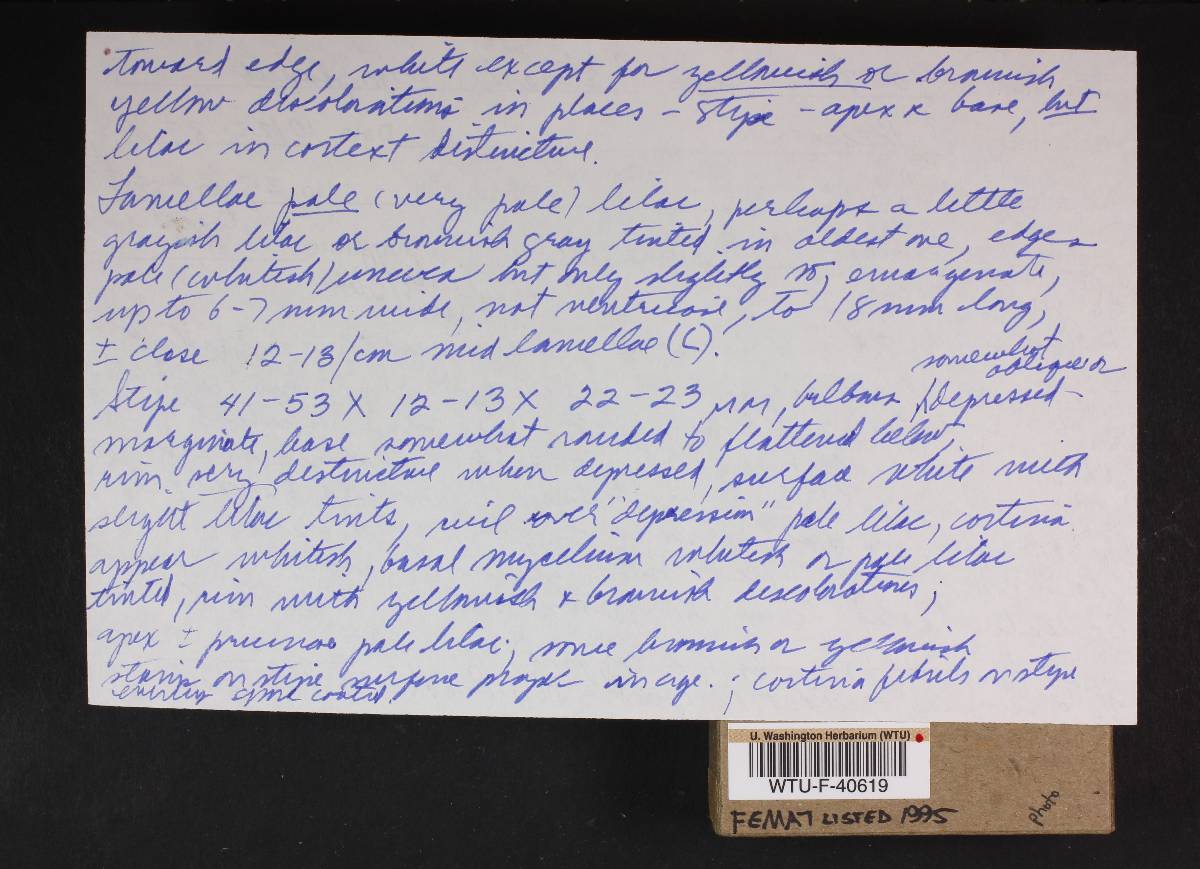 toward edge, white except for yellowish or brownish
yellow discolorations in places – Stipe – apex & base, but
lilac in cortext distincture.
Lamellae pale (very pale) lilac, perhaps a little
grayish lilac or brownish gray tinted in oldest one, edges
pale (whitish) uneven but only slightly so, emarginate,
up to 6-7 mm wide, not ventricose, to 18 mm long,
± close 12-13/cm mid lamellae (L).
somewhat
oblique or
Stipe 41-53 X 12-13 X 22-23 mm, bulbous, depressed-
marginate, base somewhat rounded to flattened below,
rim very distinctive when depressed, surface white with
slight lilac tints, veil over "depression" pale lilac, cortina
appear whitish, basal mycelium whitish or pale lilac
tinted, rim with yellowish & brownish discolorations;
apex ± pale lilac; some brownish or yellowish
stains on stipe surface proper in age. ; cortina fibrils on stipe
U. Washington Herbarium (WTU)
WTU-F-40619
FEMAT LISTED 1995
photo